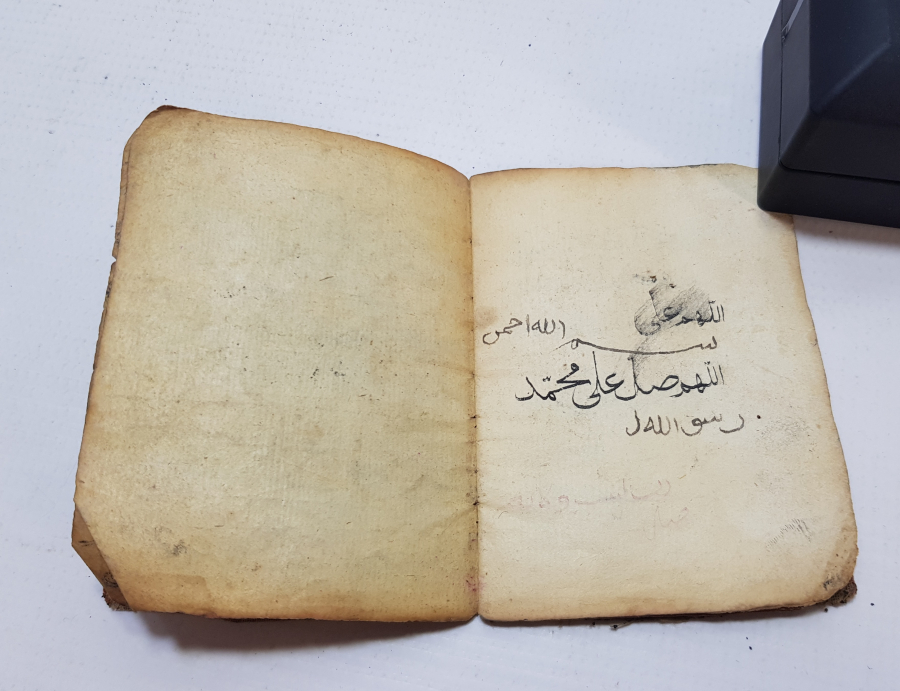 اللهم علی
بسم الله احمن
اللهم صل علی محمّد
رسو الله ل